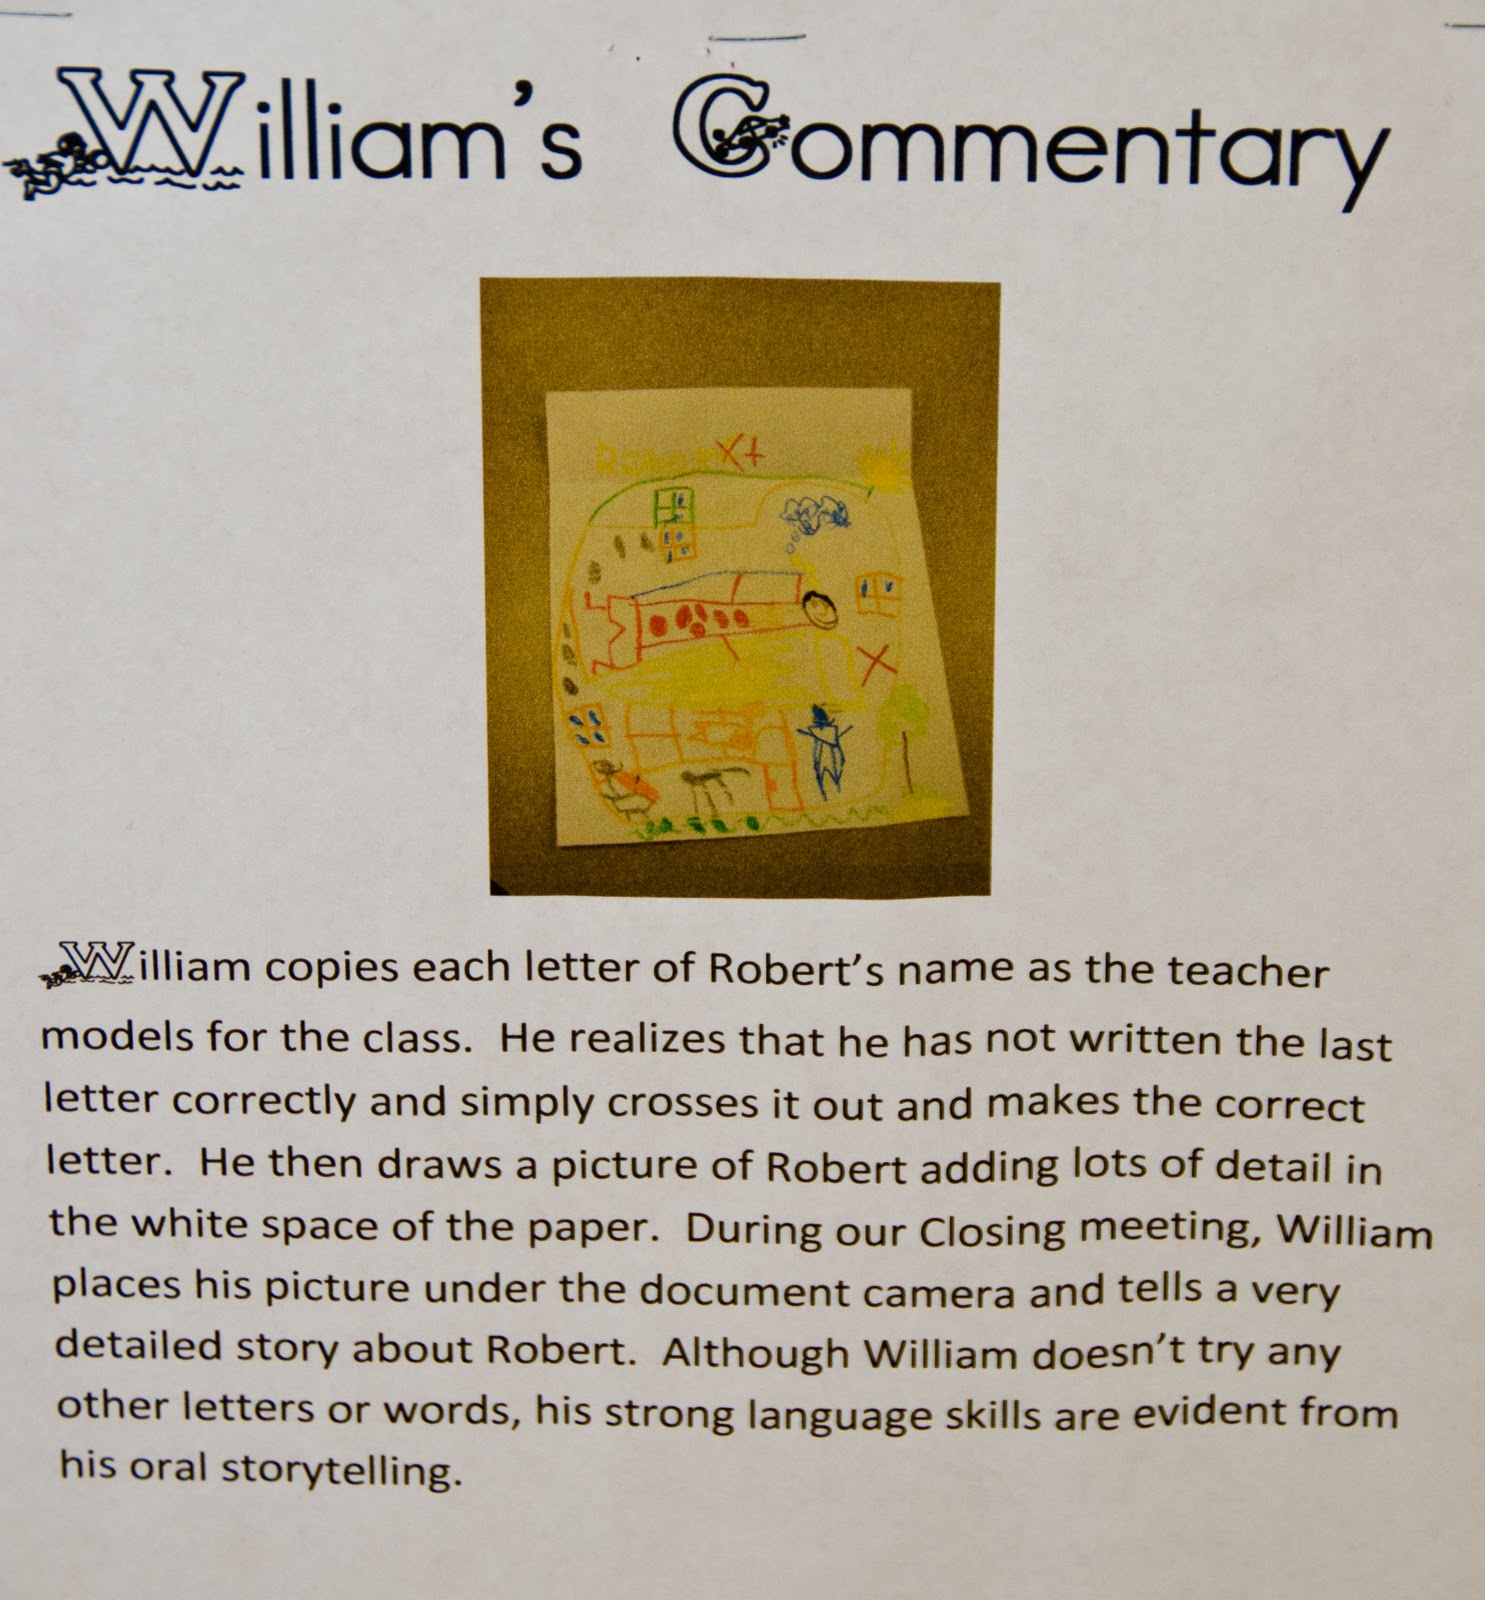 William's Commentary
Robert Xt
William copies each letter of Robert's name as the teacher
models for the class. He realizes that he has not written the last
letter correctly and simply crosses it out and makes the correct
letter. He then draws a picture of Robert adding lots of detail in
the white space of the paper. During our Closing meeting, William
places his picture under the document camera and tells a very
detailed story about Robert. Although William doesn't try any
other letters or words, his strong language skills are evident from
his oral storytelling.